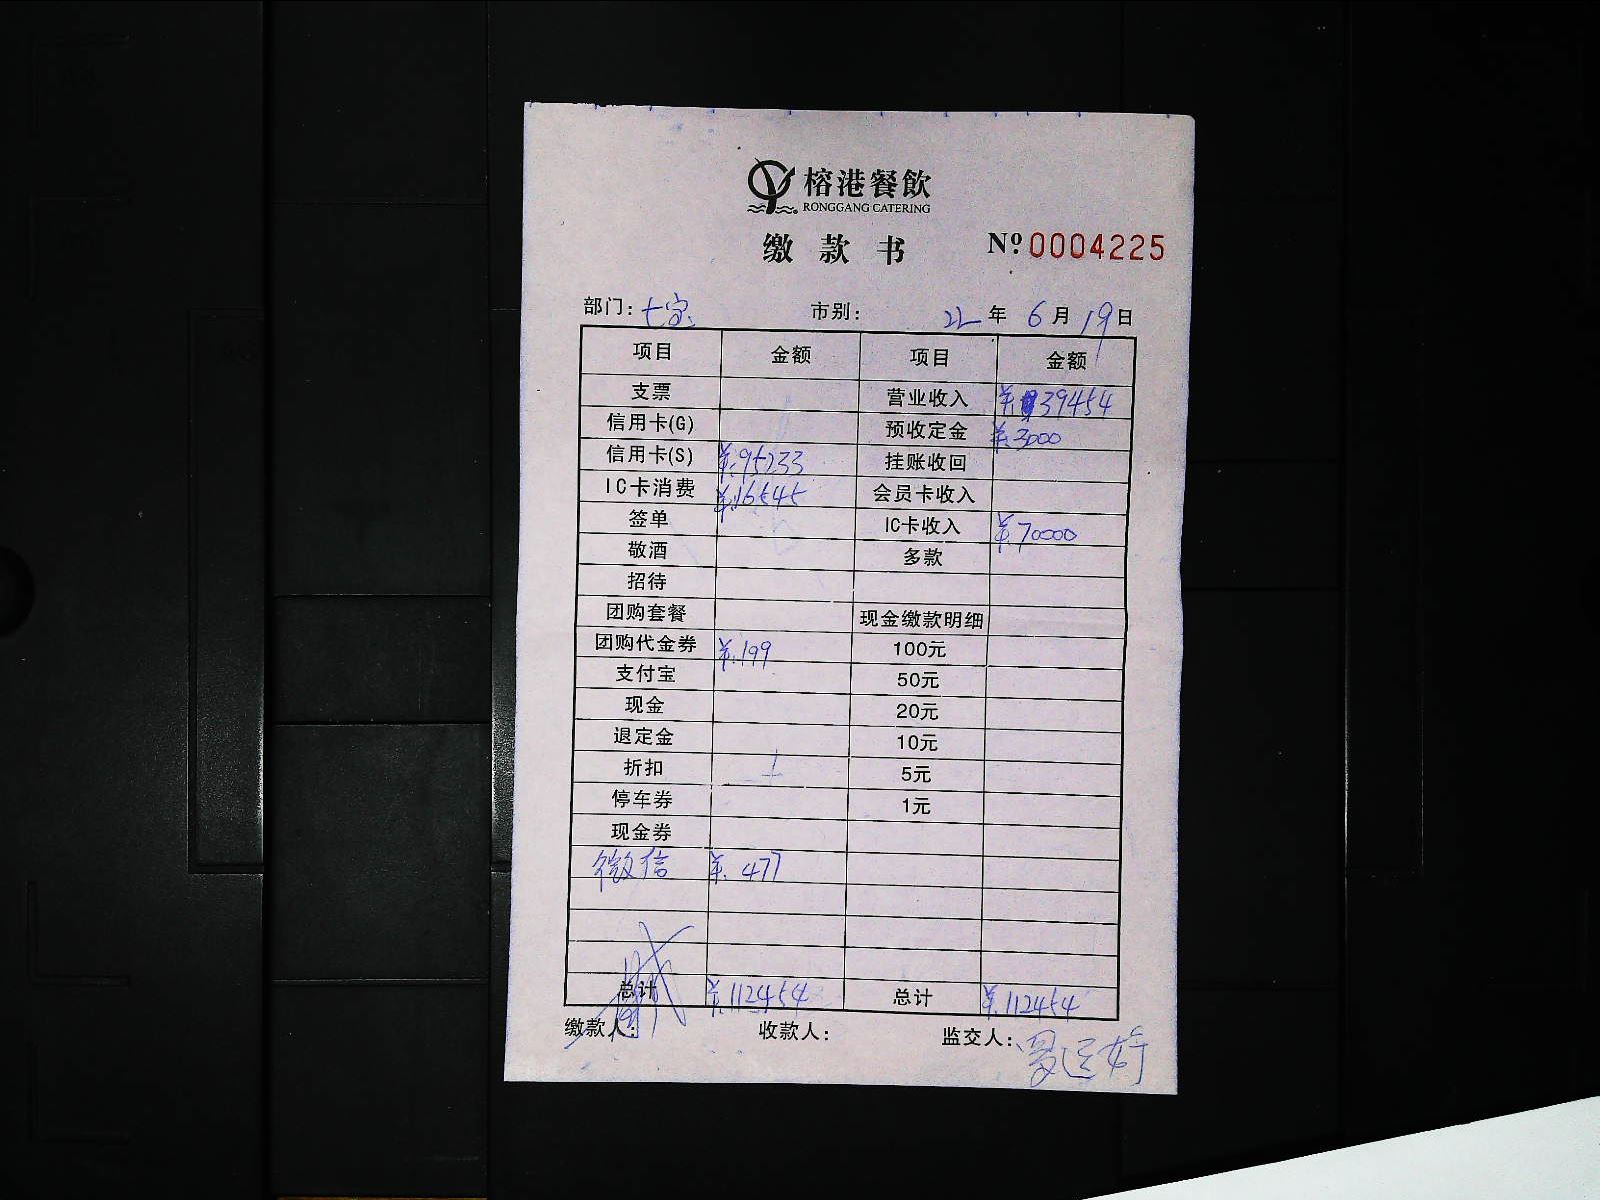 榕港餐飲
RONGGANG CATERING
缴款书 № 0004225
部门: 七家 市别: 22年6月19日
项目 金额 项目 金额
支票 营业收入 ¥.39454
信用卡(G) 预收定金 ¥.3000
信用卡(S) ¥.95233 挂账收回
IC卡消费 ¥.16545 会员卡收入
签单 IC卡收入 ¥.70000
敬酒 多款
招待
团购套餐 现金缴款明细
团购代金券 ¥.199 100元
支付宝 50元
现金 20元
退定金 10元
折扣 5元
停车券 1元
现金券
微信 ¥.477
总计 ¥.112454 总计 ¥.112454
缴款人: 收款人: 监交人: